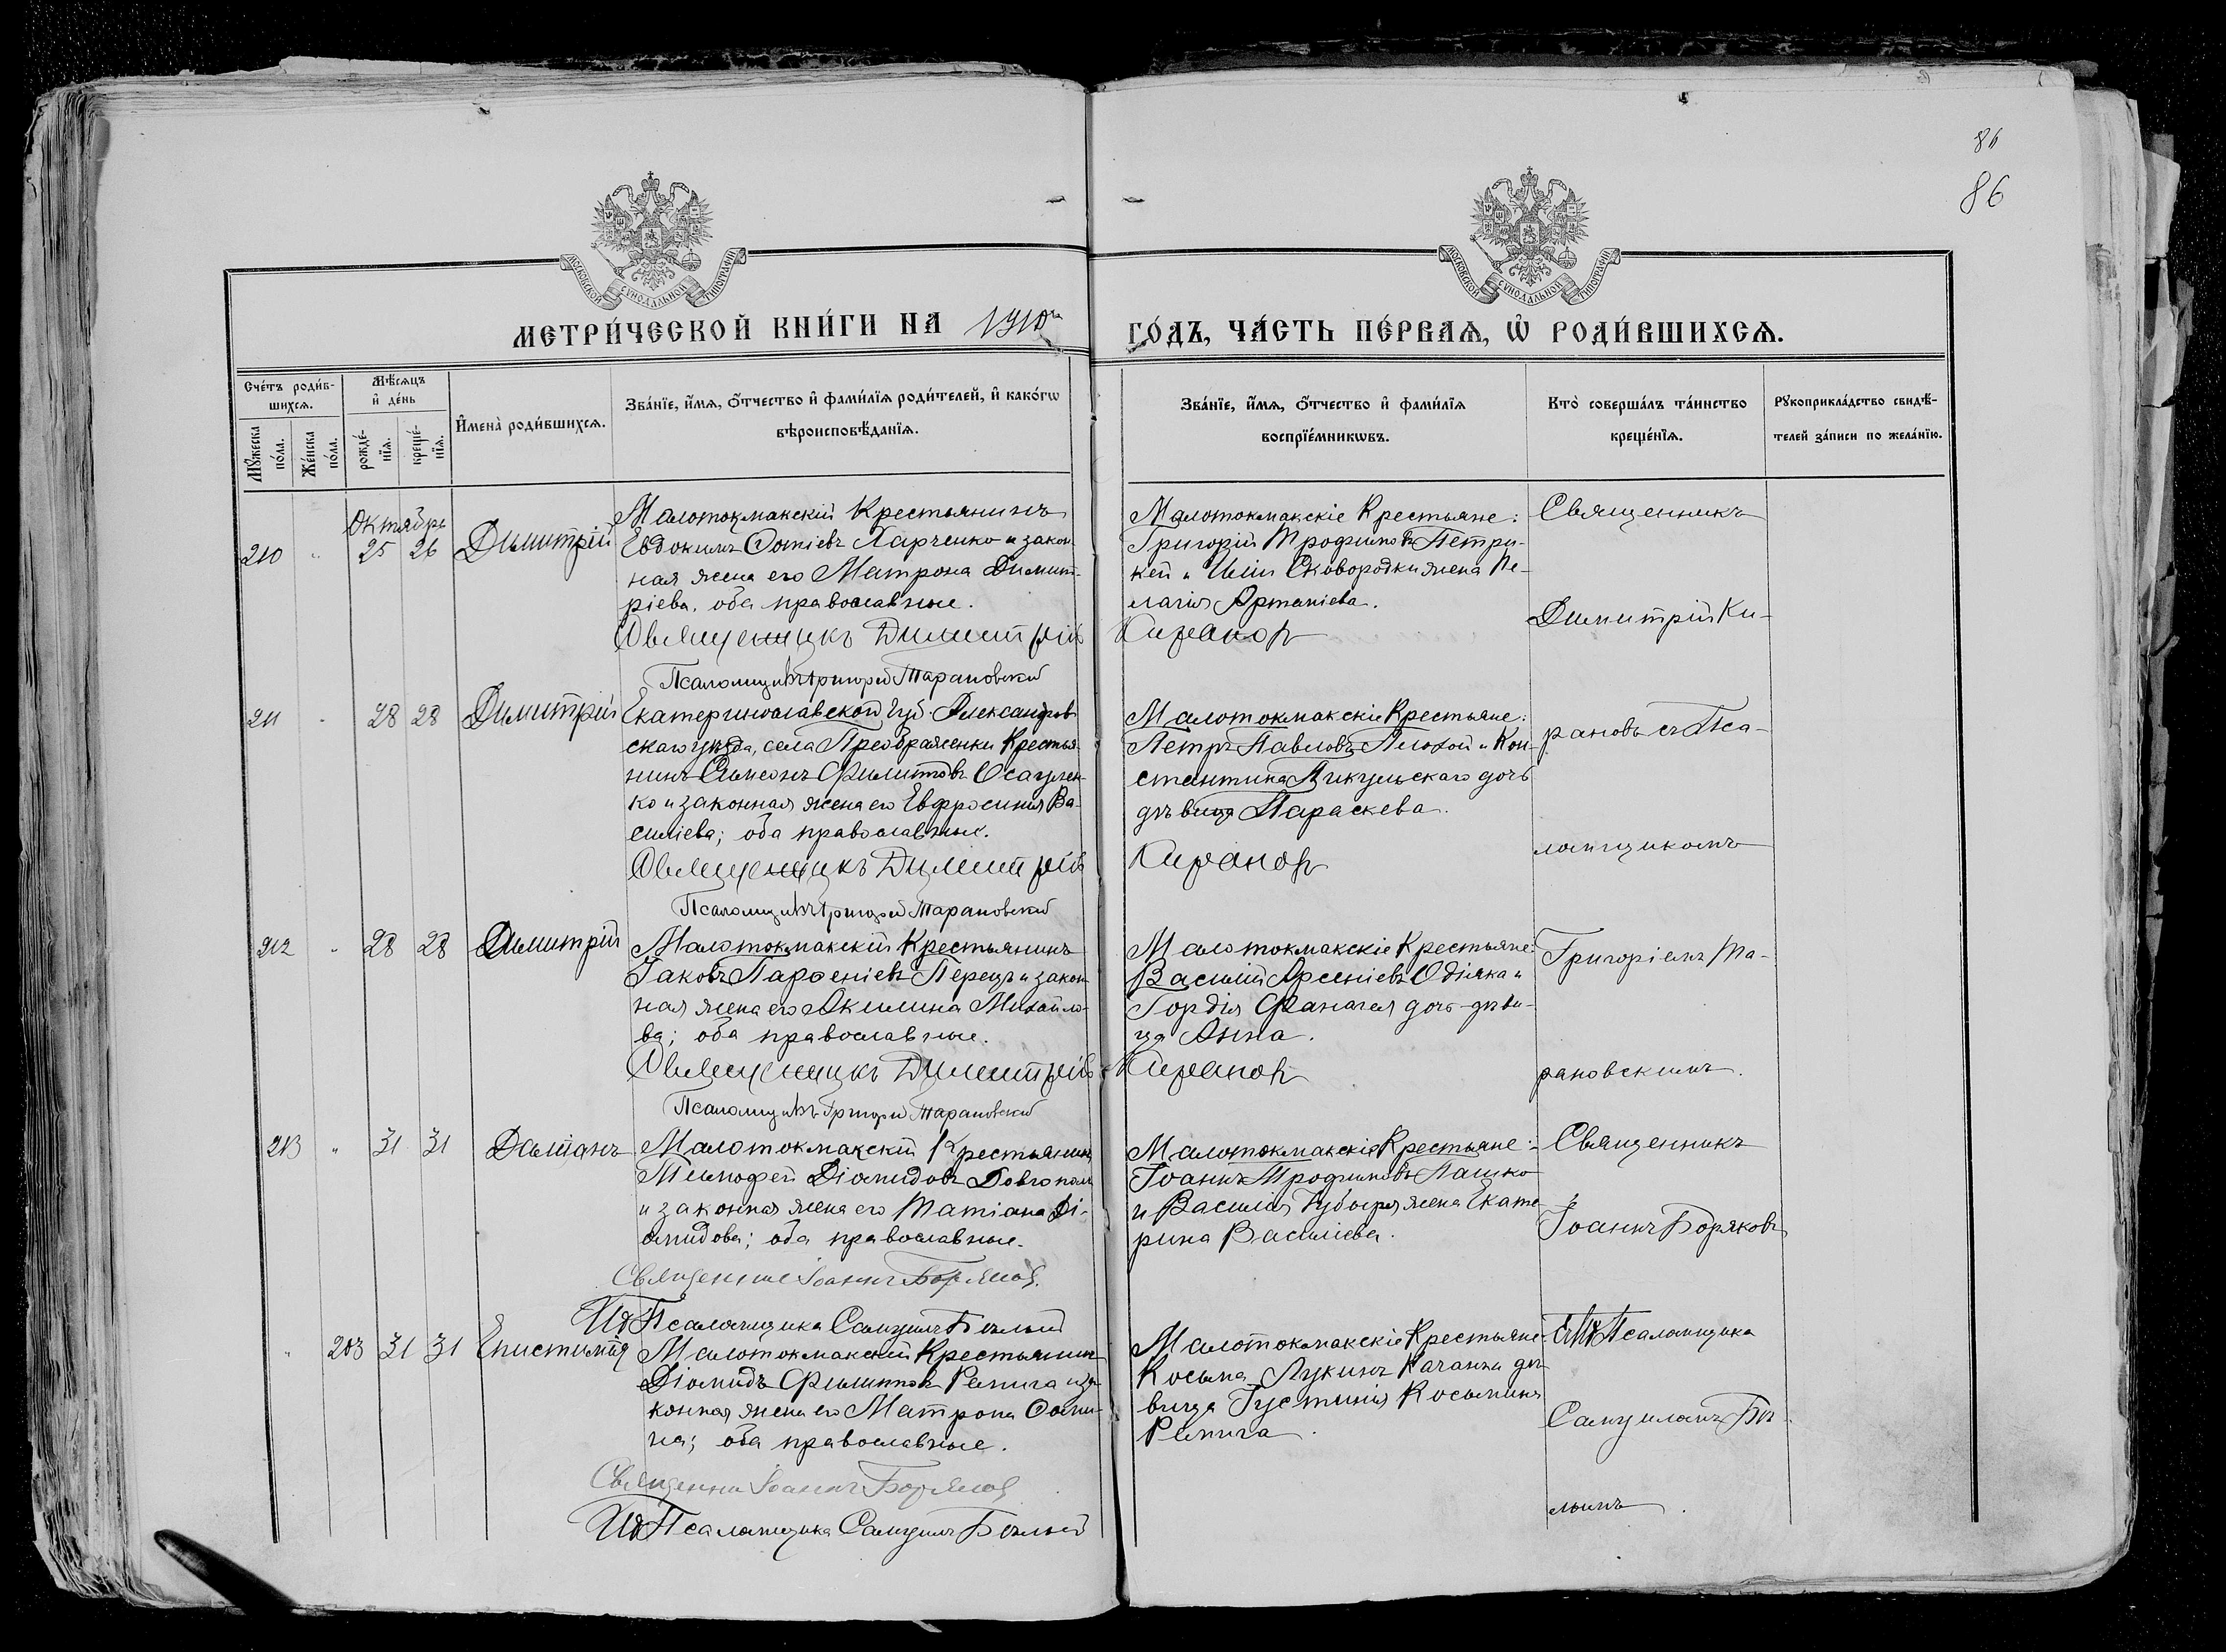 86
86
МОСКОВСКОЙ СѴНОДАЛЬНОЙ ТИПОГРАФІИ
МОСКОВСКОЙ СѴНОДАЛЬНОЙ ТИПОГРАФІИ
МЕТРИ́ЧЕСКОЙ КНИ́ГИ НА 1910й ГО́ДЪ, ЧА́СТЬ ПЕ́РВАѦ, Ѽ РОДИ́ВШИХСѦ.
Сче́тъ роди́в-
шихсѧ.
Мꙋ́жеска по́ла.
Же́нска по́ла.
Мѣ́сѧцъ
и҆ де́нь
рожде́-
нїѧ.
креще́-
нїѧ.
И҆мена̀ роди́вшихсѧ.
Зва́нїе, и҆́мѧ, ѻ҆́тчество и҆ фами́лїѧ роди́телей, и҆ како́гѡ
вѣроисповѣ́данїѧ.
Зва́нїе, и҆́мѧ, ѻ҆́тчество и҆ фами́лїѧ
воспрїе́мникѡвъ.
Кто̀ соверша́лъ та́инство
креще́нїѧ.
Рꙋкоприкла́дство свидѣ́-
телей за́писи по жела́нїю.
Октября
210 " 25 26 Димитрій
Малотокмакскій Крестьянинъ
Евдокимъ Фотіевъ Харченко и закон-
ная жена его Матрона Димит-
ріева, оба православные.
Священникъ Димитрій Киранов
Псаломщикъ Григорій Тарановскій
Малотокмакскіе Крестьяне:
Григорій Трофимовъ Петри-
кей и Сковородки жена Пе-
лагія Артеміева.
Священникъ
Димитрій Ки-
211 " 28 28 Димитрій
Екатеринославской губ. Александров-
скаго уѣзда, села Преображенки Крестья-
нинъ Симеонъ Филиповъ Осаулен-
ко и законная жена его Евфросинія Ва-
силіева; оба православные.
Священникъ Димитрій Киранов
Псаломщикъ Григорій Тарановскій
Малотокмакскіе Крестьяне:
Петръ Павловъ Плохой и Кон-
стантина дочь
дѣвица Параскева.
рановъ съ Пса-
ломщикомъ
212 " 28 28 Димитрій
Малотокмакскій Крестьянинъ
Іаковъ Парѳеніевъ Перецъ и закон-
ная жена его Акилина Михайло-
ва; оба православные.
Священникъ Димитрій Киранов
Псаломщикъ Григорій Тарановскій
Малотокмакскіе Крестьяне:
Василій Арсеніевъ Одинака и
Гордія Фаначея дочь дѣви-
ца Анна.
Григоріемъ Та-
рановскимъ.
213 " 31 31 Даміанъ
Малотокмакскій Крестьянинъ
Тимофей Діомидовъ Довгополъ
и законная жена его Татіана Ді-
омидова; оба православные.
Священникъ Іоаннъ Боряков.
Ид Псаломщика Самуилъ Бѣлый
Малотокмакскіе Крестьяне:
Іоаннъ Трофимовъ Пашко
и Василія Губыря жена Екате-
рина Василіева.
Священникъ
Іоаннъ Боряковъ
" 203 31 31 Епистимія
Малотокмакскій Крестьянинъ
Діомидъ Филиповъ Репича и за-
конная жена его Матрона Фоми-
на; оба православные.
Священни Іоаннъ Боряков
Ид Псаломщика Самуилъ Бѣлый
Малотокмакскіе Крестьяне:
Косьма Лукинъ Качанъ и дѣ-
вица Іустинія Косьмина
Репича.
съ Ид Псаломщика
Самуиломъ Бѣ-
лымъ.